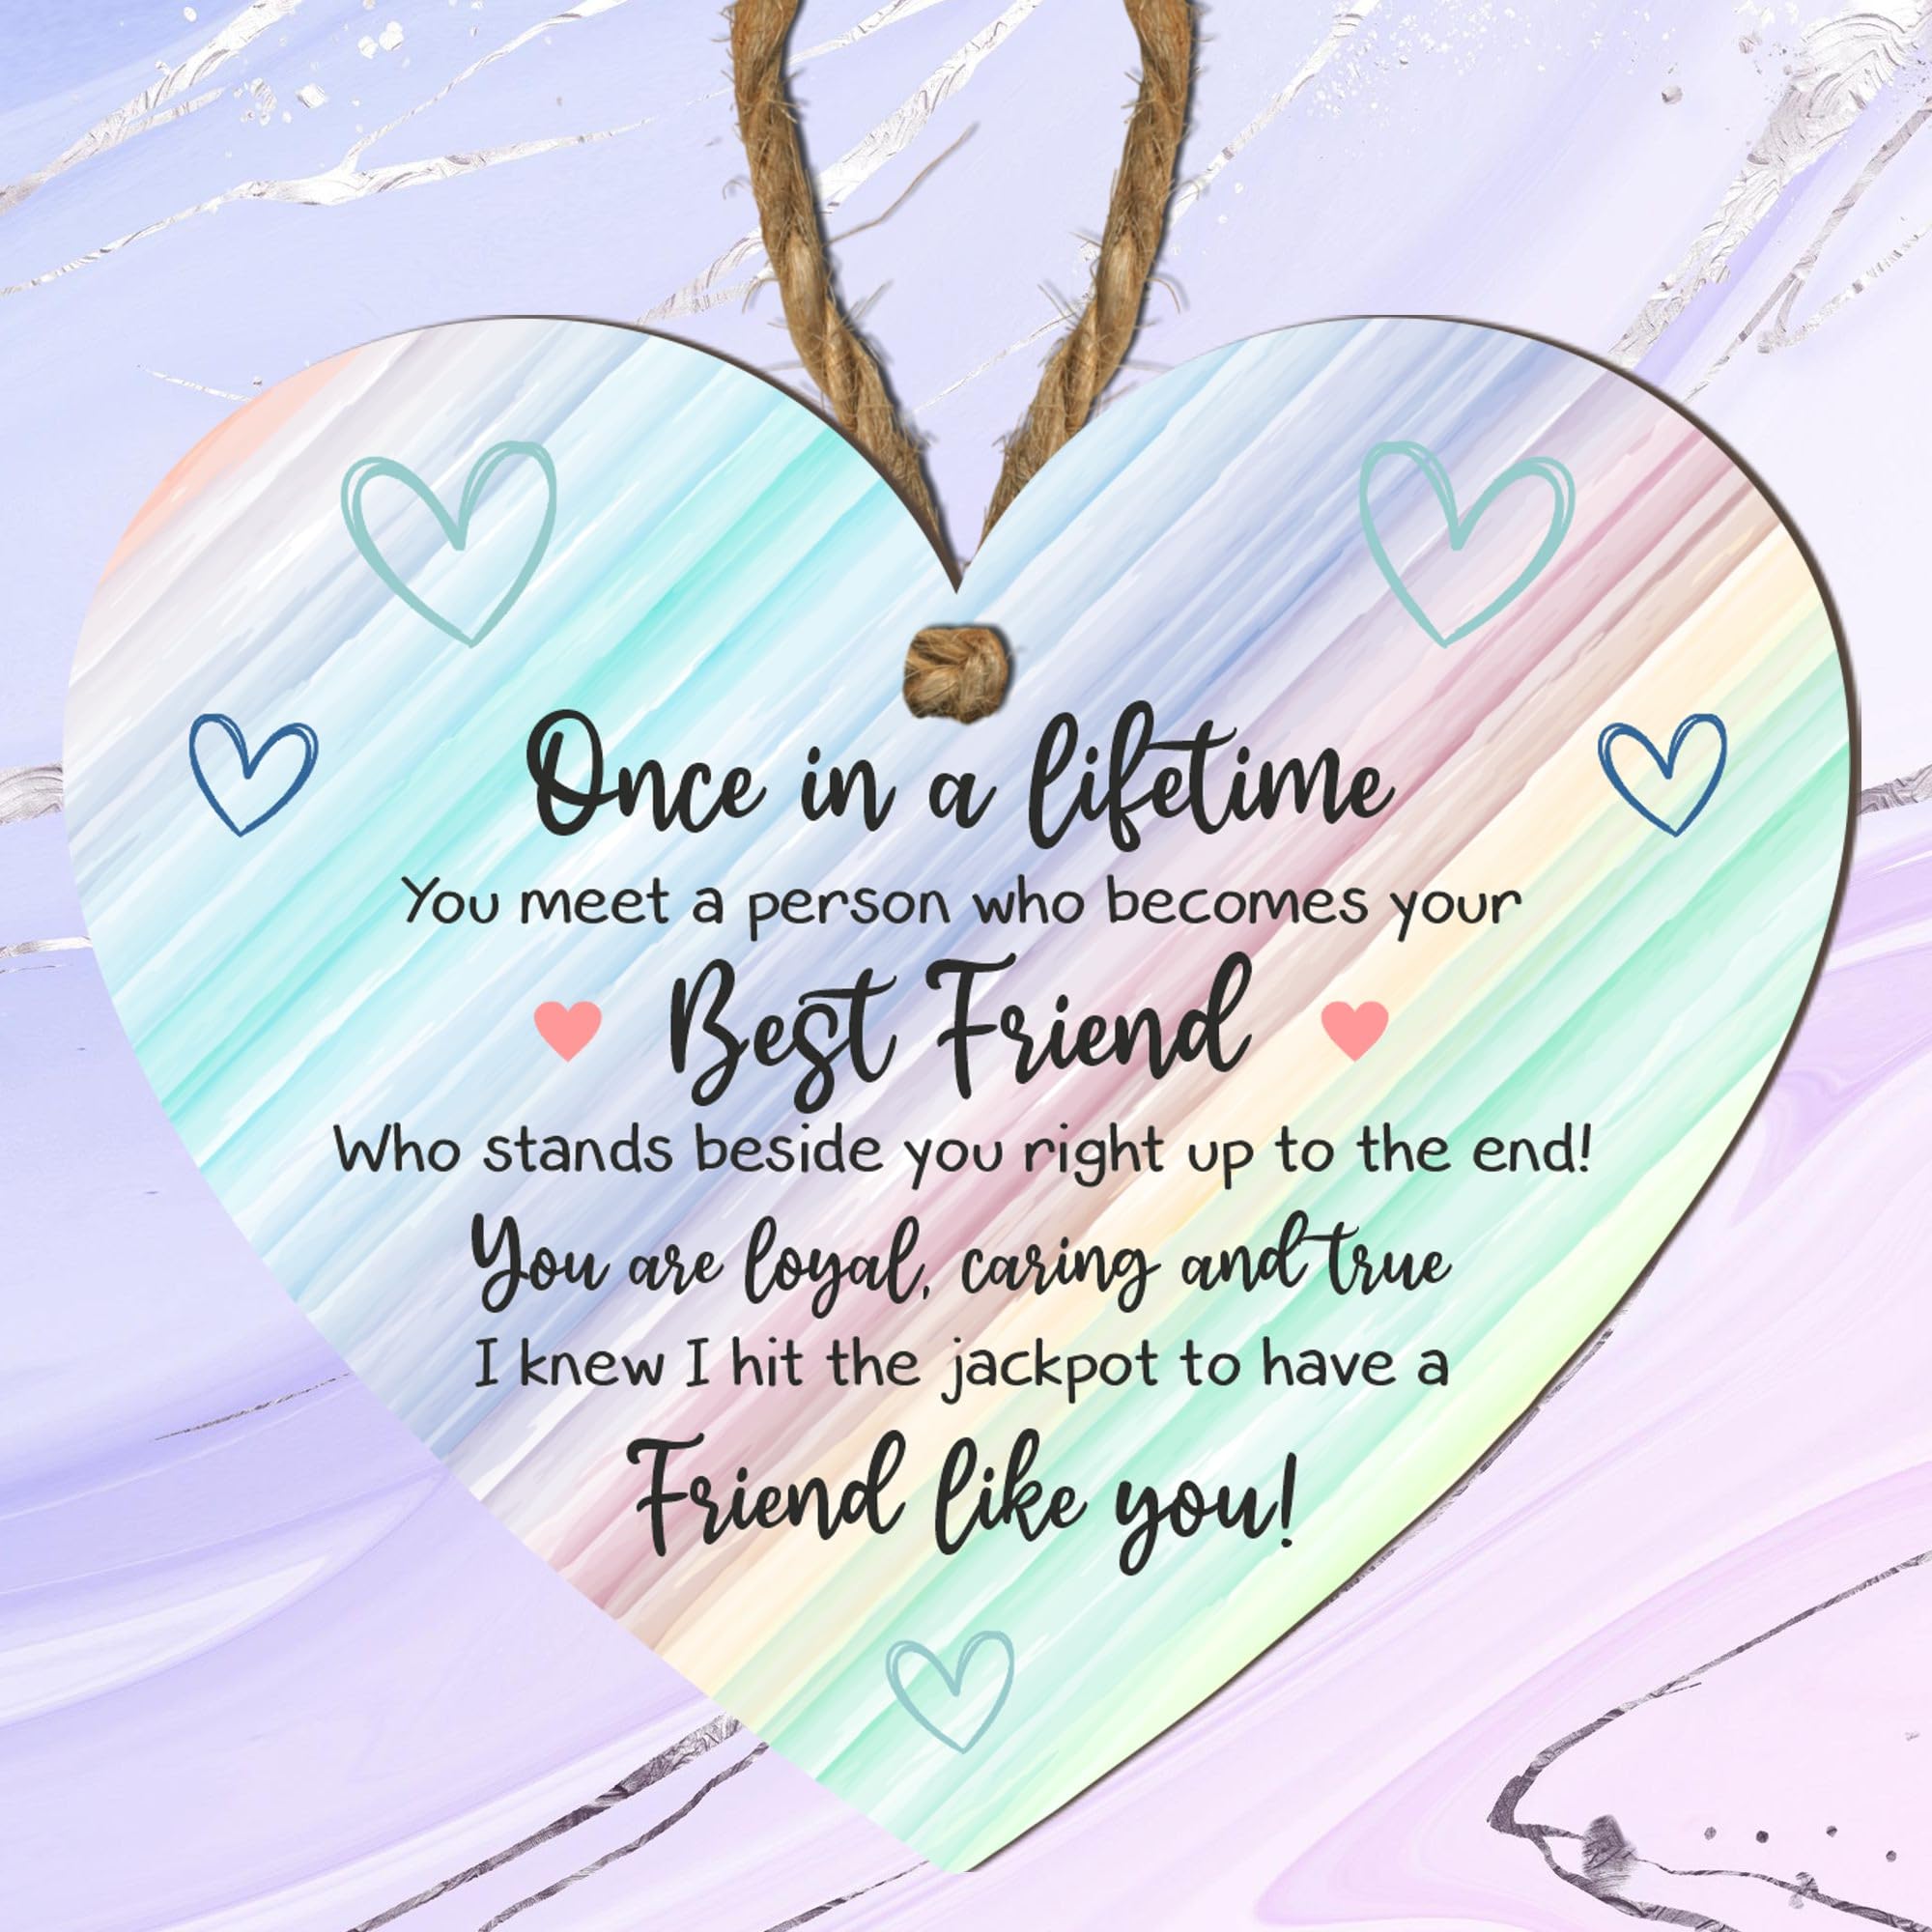 Once in a lifetime
You meet a person who becomes your
Best Friend
Who stands beside you right up to the end!
You are loyal, caring and true
I knew I hit the jackpot to have a
Friend like you!